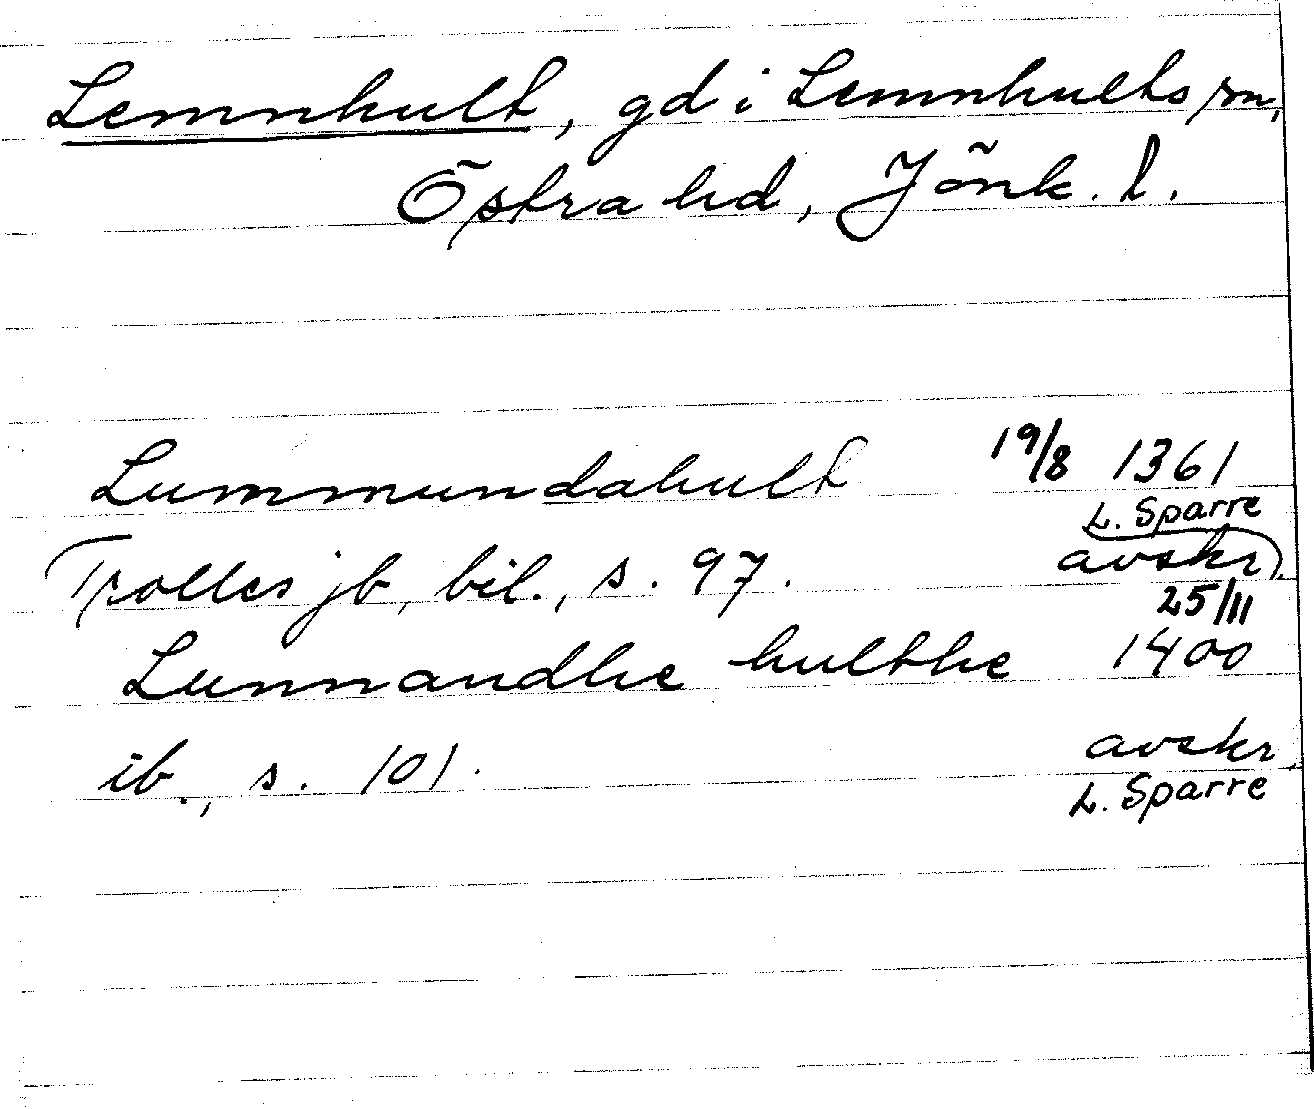 Lemnhult, gd i Lemnhults sn,
Östra hd, Jönk. l.
Lummundahult 19/8 1361
L. Sparre
Trolles jb, bil., s. 97. avskr.
25/11
Lunnandhe hulthe 1400
ib., s. 101. avskr.
L. Sparre